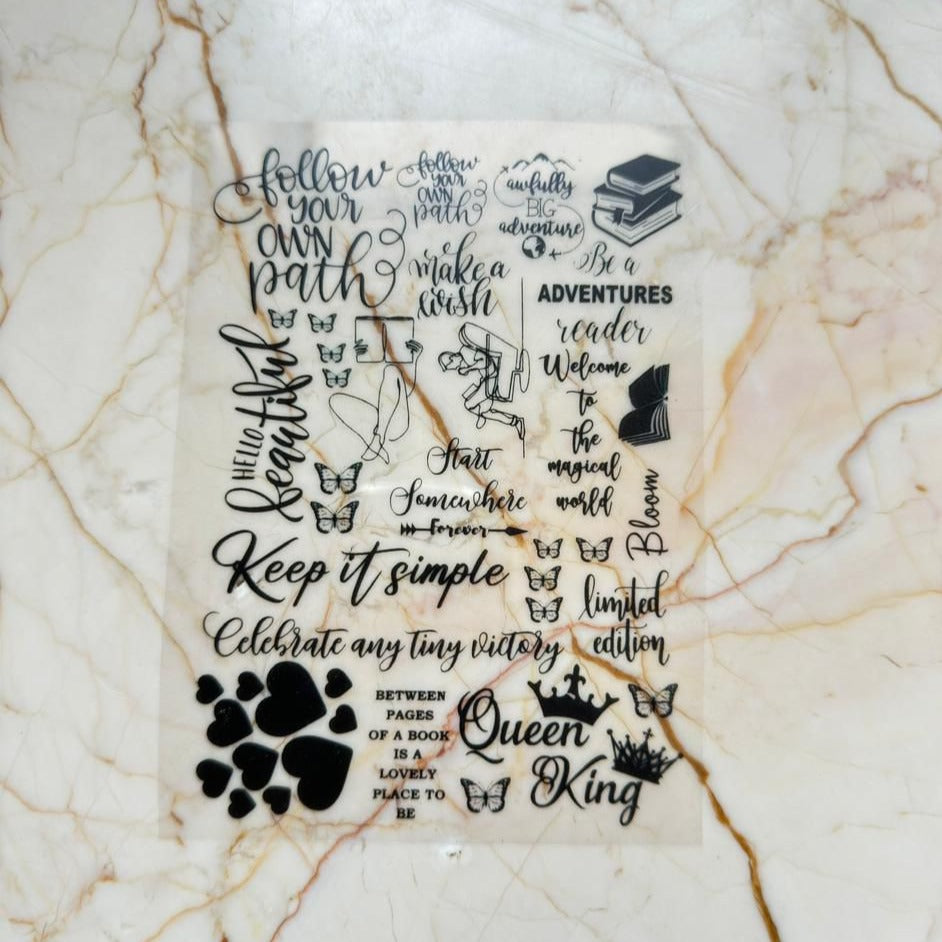 follow
your
own
path
follow
your
own
path
awfully
BIG
adventure
make a
wish
Be a
ADVENTURES
reader
HELLO
beautiful
Welcome
to
the
magical
world
Start
Somewhere
Forever
Bloom
Keep it simple
limited
edition
Celebrate any tiny victory
BETWEEN
PAGES
OF A BOOK
IS A
LOVELY
PLACE TO
BE
Queen
King